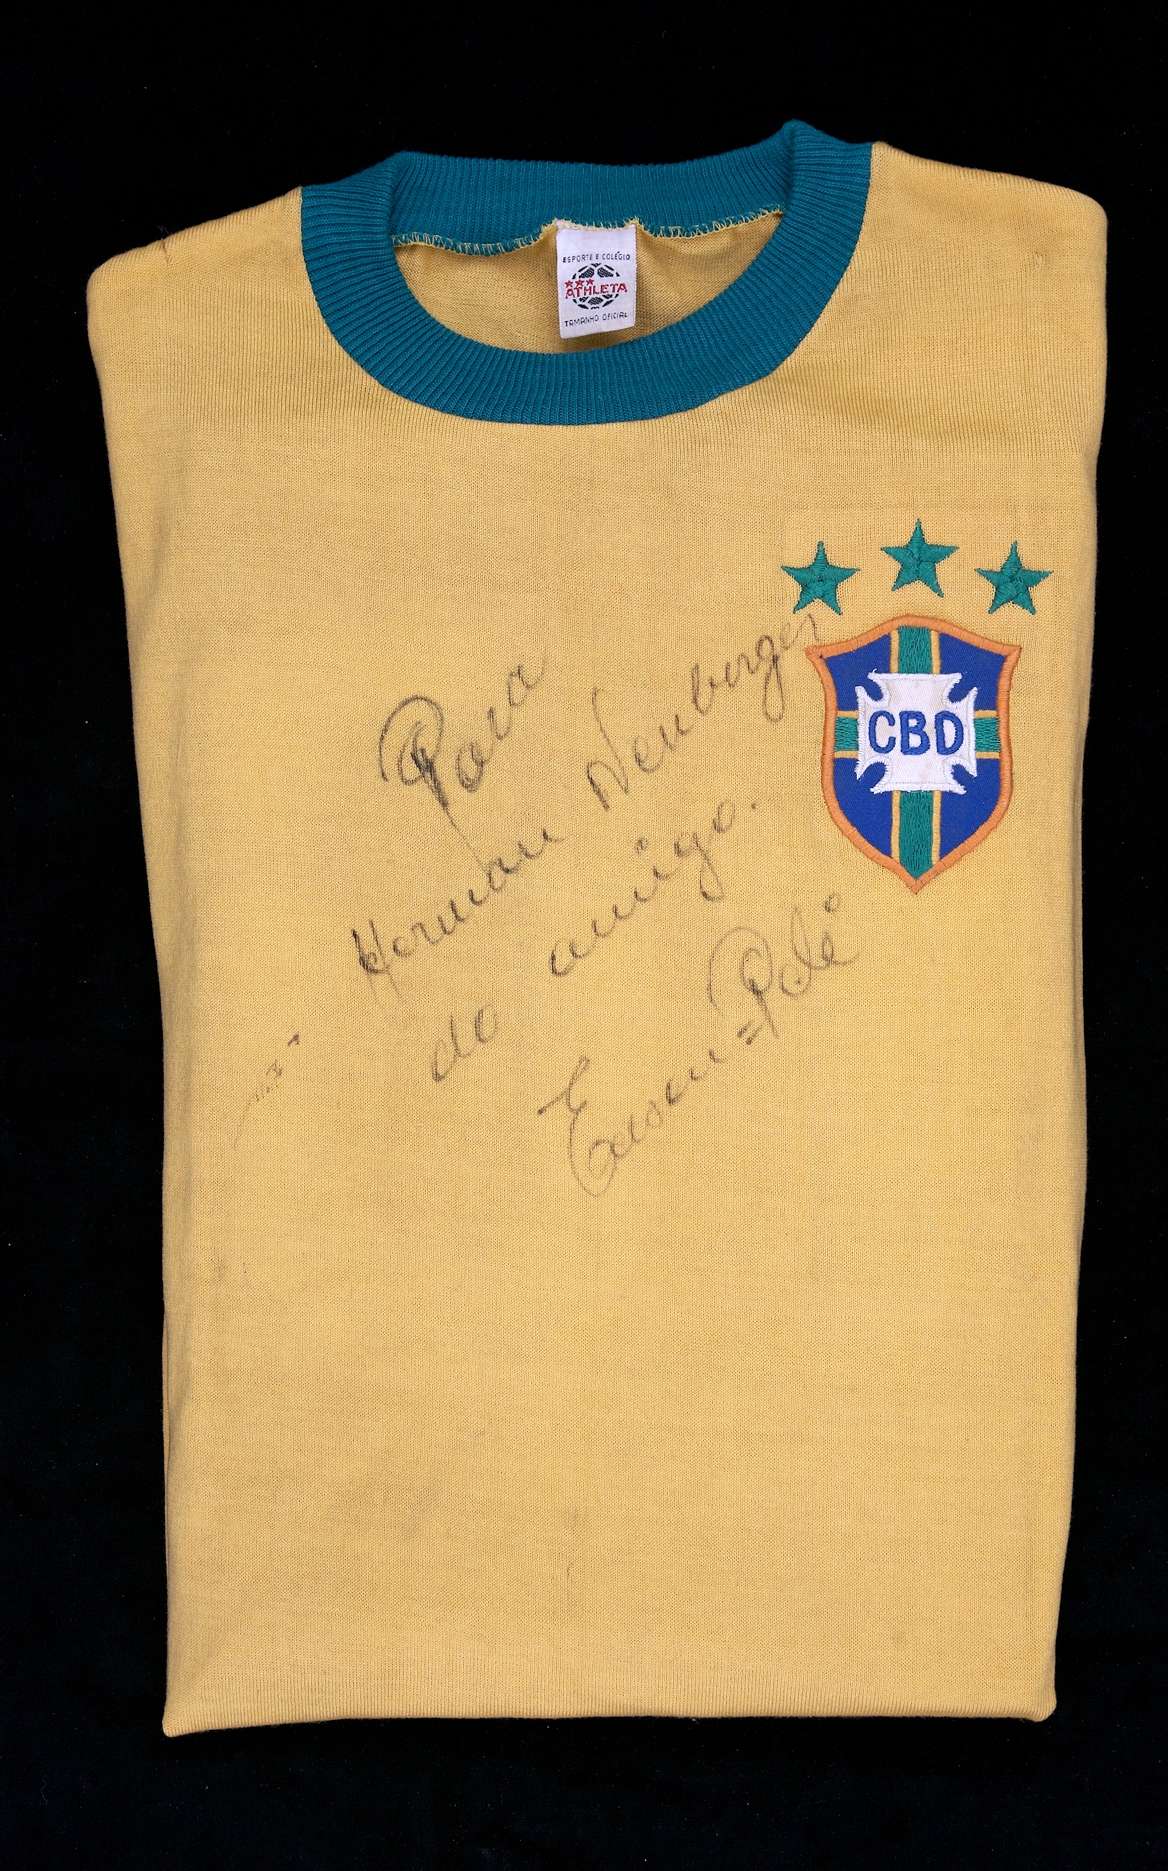 ESPORTE E COLÉGIO
ATHLETA
TAMANHO OFICIAL
CBD
Para
Herman Neuberger
do amigo.
Edson=Pelé